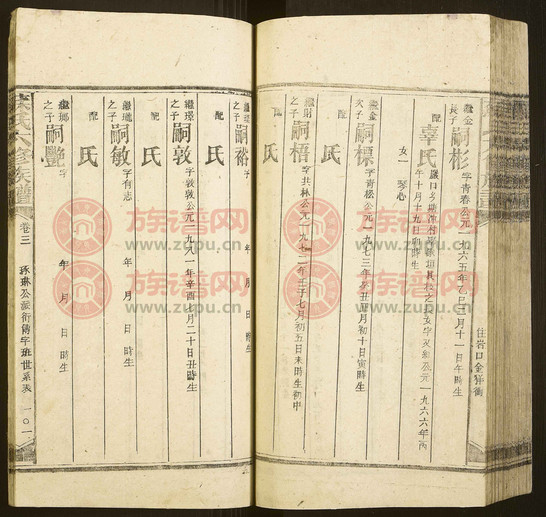 住岩口金
繼金長子
嗣彬
字青春公元一九六五年乙巳三月十一日午時生
配
辜氏
年十月十九日卯時生
女一 琴心
繼金次子
嗣標
字青松公元一九七三年癸丑正月初十日寅時生
配
氏
繼財之子
嗣梧
字共林公元一九七二年壬子七月初五日未時生初中
配
氏
之子
嗣裕
字
年 月 日 時生
配
氏
繼環之子
嗣敦
字敦敦公元一九八一年辛酉七月二十日丑時生
配
氏
之子
嗣敏
字有志
年 月 日 時生
配
氏
之子
嗣艷
字
年 月 日 時生
氏六修族譜
卷三
琢琳公派衍傳字班世系表
一〇一
族谱网
www.zupu.cn
族谱网
www.zupu.cn
族谱网
www.zupu.cn
族谱网
www.zupu.cn